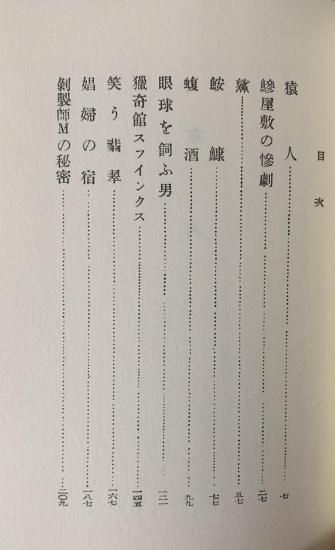 目次
猿人……七
鰺屋敷の惨劇……二七
鯊……五七
鮟鱇……七七
蝮酒……九九
眼球を飼ふ男……一二一
獵奇館スフインクス……一四五
笑う翡翠……一六七
娼婦の宿……一八七
剝製師Mの秘密……二〇九